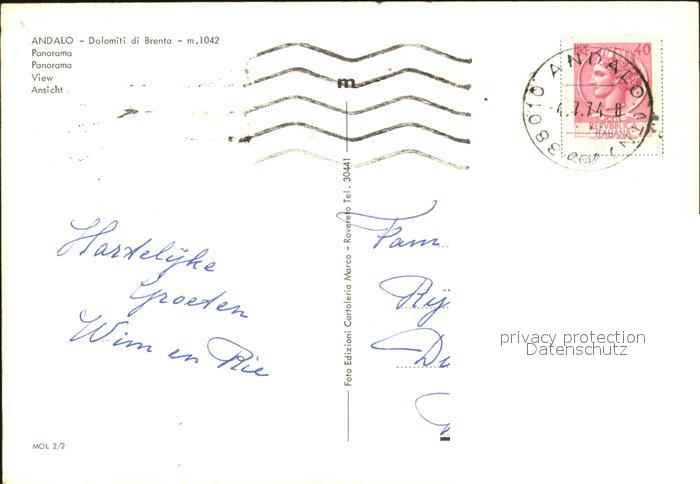 ANDALO - Dolomiti di Brenta - m. 1042
Panorama
Panorama
View
Ansicht
m
LIRE 40
REPVBBLICA
ITALIANA
38010 ANDALO (TN)
.7.74-8
Foto Edizioni Cartoleria Marco - Rovereto Tel. 30441
Hartelijke
Groeten
Wim en Rie
Fam
Rij
privacy protection
Datenschutz
MOL 2/2